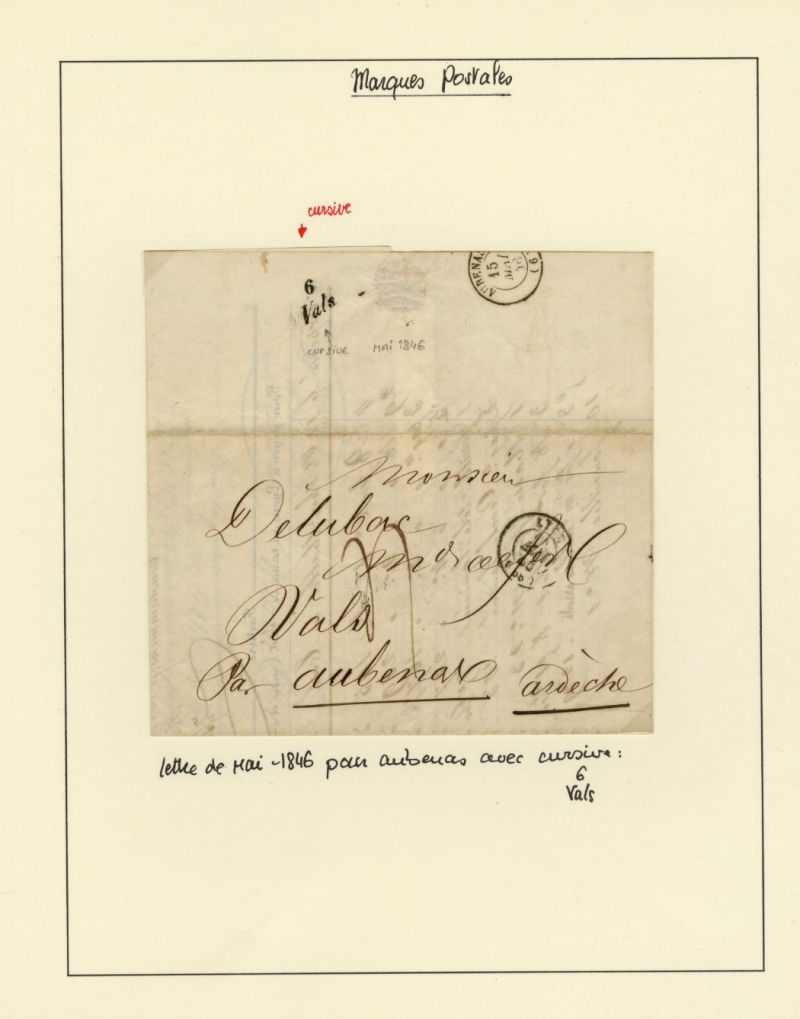 Marques Postales
cursive
AUBENAS
15
MAI
46
(6)
6
Vals
CURSIVE MAI 1846
Monsieur
Delubac
Vals
Par aubenas ardèche
lettre de Mai -1846 pour aubenas avec cursive :
6
Vals